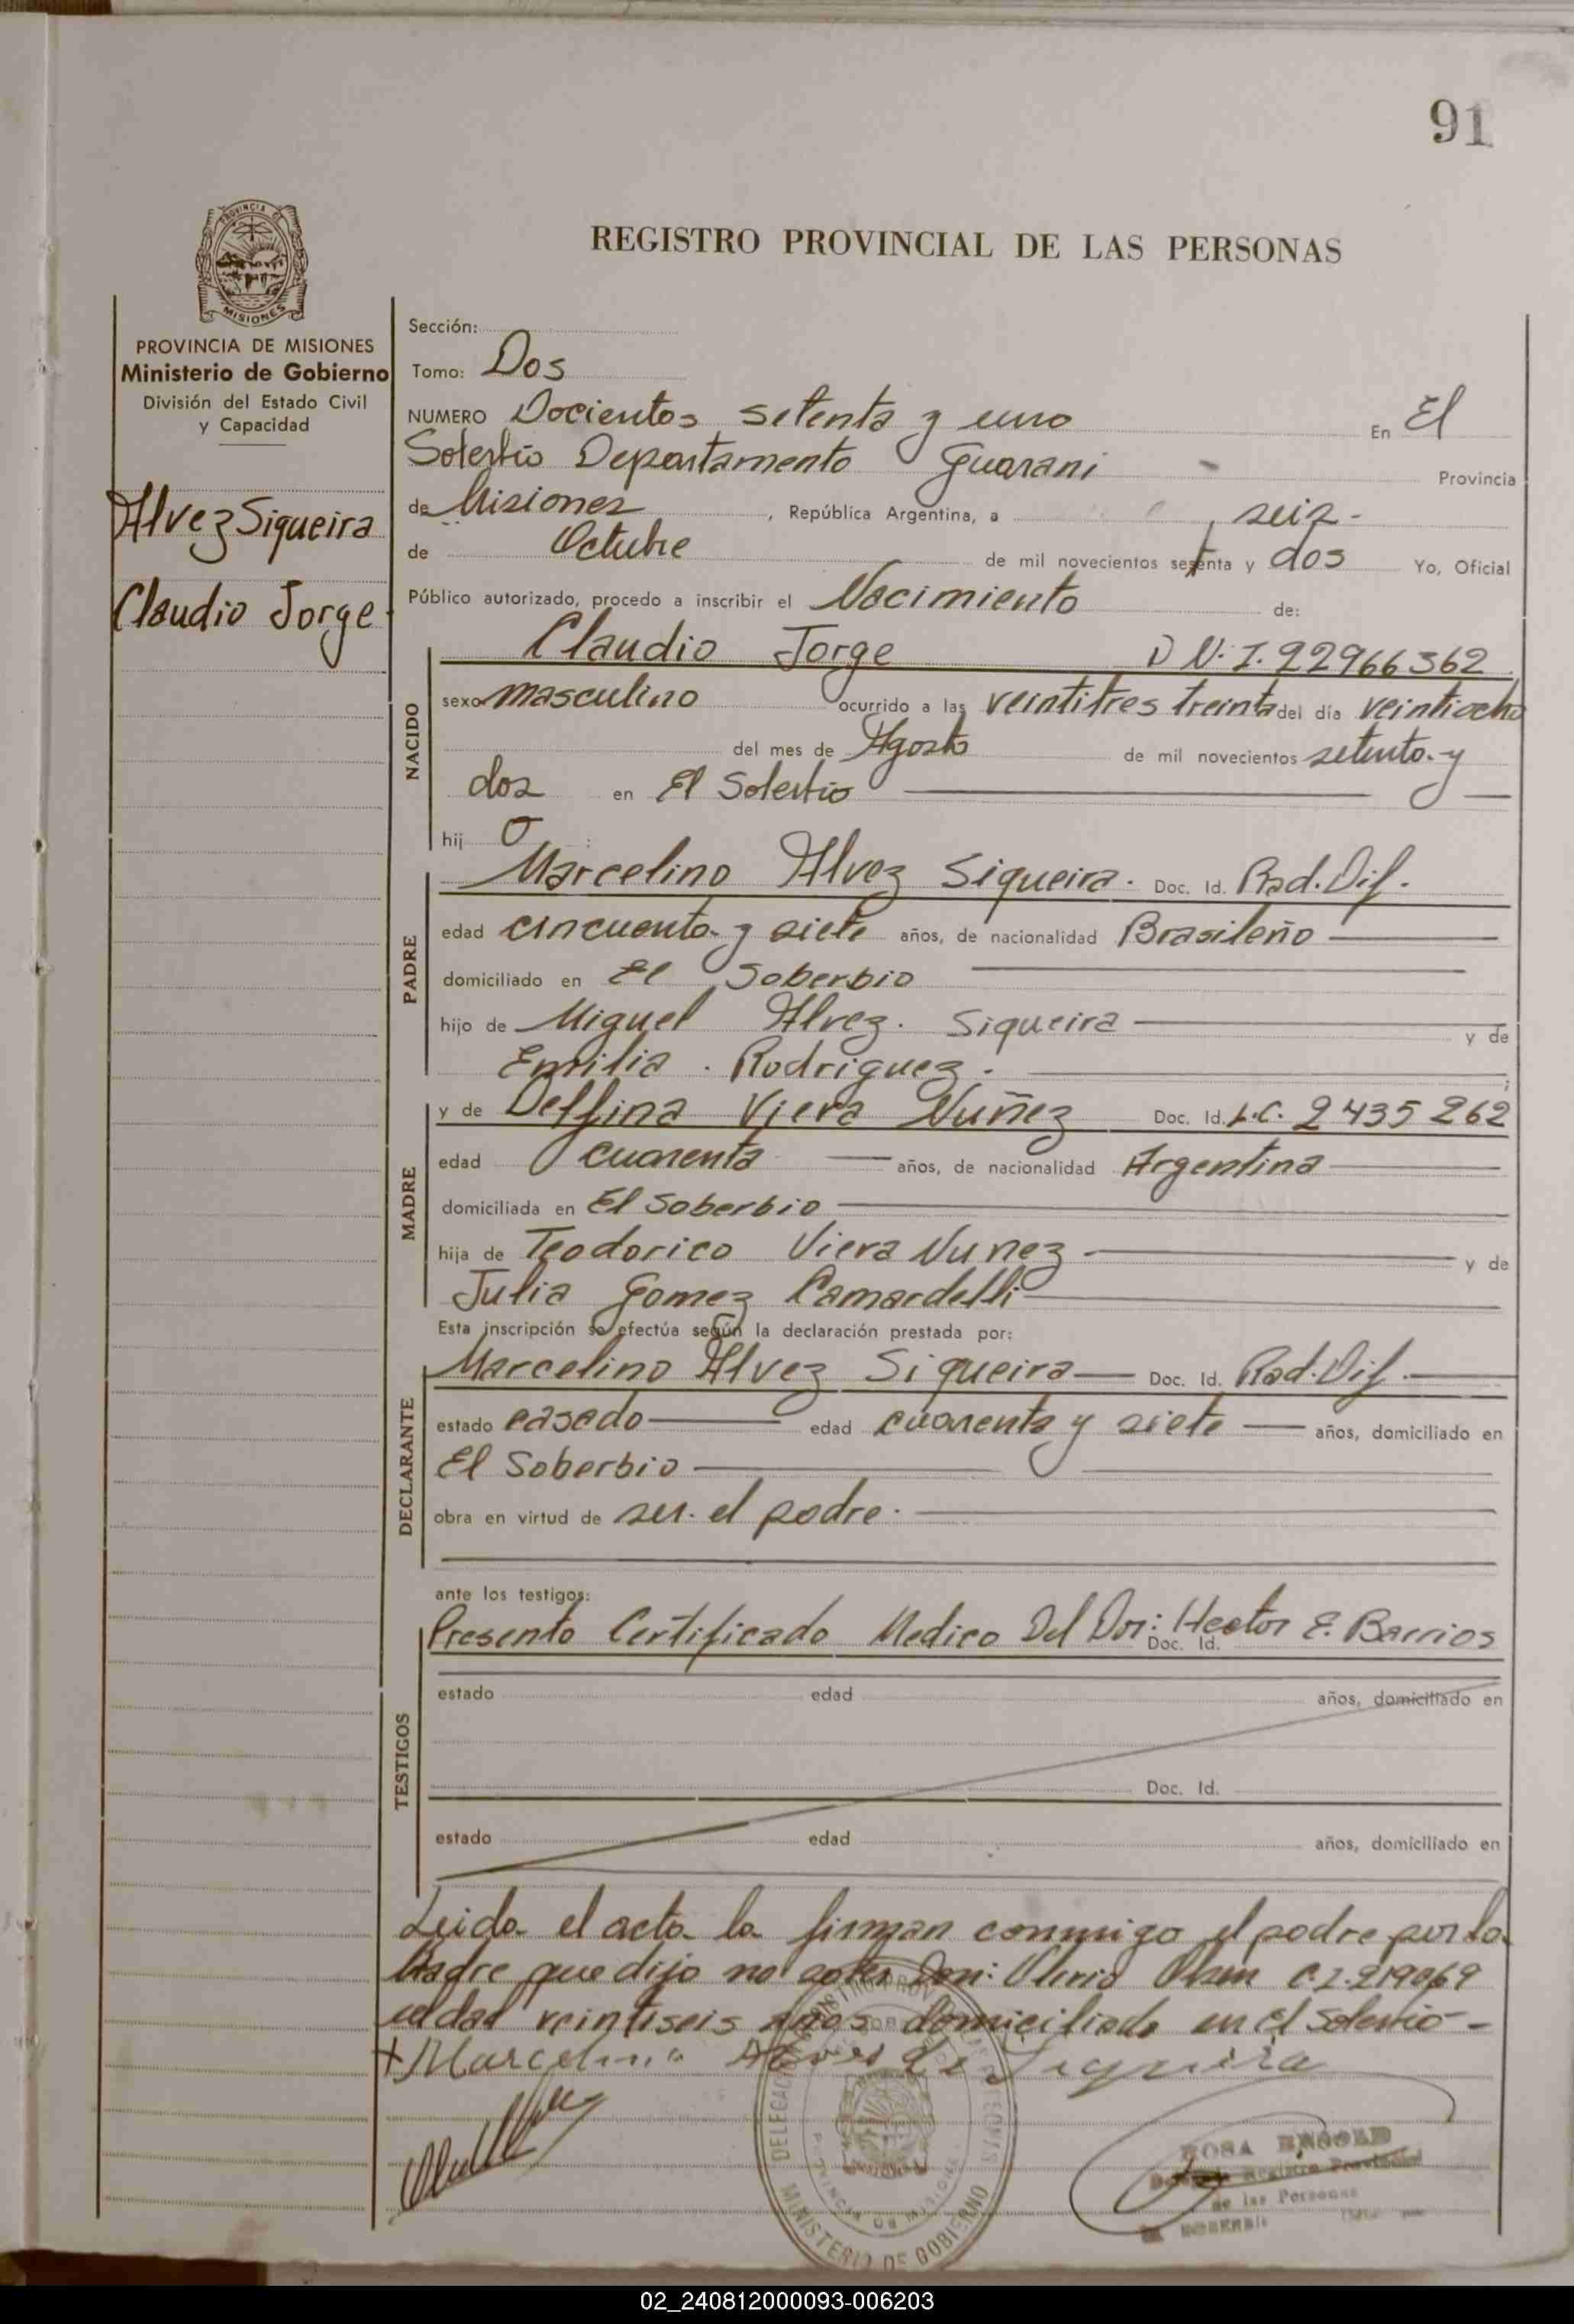 91
REGISTRO PROVINCIAL DE LAS PERSONAS
PROVINCIA DE MISIONES
Ministerio de Gobierno
División del Estado Civil
y Capacidad
Alvez Siqueira
Claudio Jorge
Sección:
Tomo: Dos
NUMERO Docientos setenta y uno En El
Soberbio Departamento Guarani Provincia
de Misiones, República Argentina, a seis
de Octubre de mil novecientos setenta y dos Yo, Oficial
Público autorizado, procedo a inscribir el Nacimiento de:
NACIDO
Claudio Jorge D N.I. 22966362
sexo masculino ocurrido a las veintitres treinta del día veintiocho
del mes de Agosto de mil novecientos setenta y
dos en El Soberbio
hij o
PADRE
Marcelino Alvez Siqueira. Doc. Id. Rad. Dif.
edad cincuenta y siete años, de nacionalidad Brasileño
domiciliado en El Soberbio
hijo de Miguel Alvez. Siqueira y de
Emilia. Rodriguez.
MADRE
y de Delfina Viera Nuñez Doc. Id. L.C. 2435262
edad cuarenta años, de nacionalidad Argentina
domiciliada en El Soberbio
hija de Teodorico Viera Nunez y de
Julia Gomez Camardelli
Esta inscripción se efectúa según la declaración prestada por:
DECLARANTE
Marcelino Alvez Siqueira Doc. Id. Rad. Dif.
estado casado edad cuarenta y siete años, domiciliado en
El Soberbio
obra en virtud de ser. el padre.
ante los testigos:
TESTIGOS
Presento Certificado Medico Del Dor: Hector E. Barrios
Doc. Id.
estado edad años, domiciliado en
Doc. Id.
estado edad años, domiciliado en
Leida el acta la firman conmigo el padre por la
Madre que dijo no Don: C.I. 219069
edad veintiseis años domiciliado en El Soberbio
+ Marcelino Alves de Siqueira
DELEGACION REGISTRO PROVINCIAL DE LAS PERSONAS
MINISTERIO DE GOBIERNO
PROVINCIA DE MISIONES
ROSA
Registro Provincial
de las Personas
02_240812000093-006203